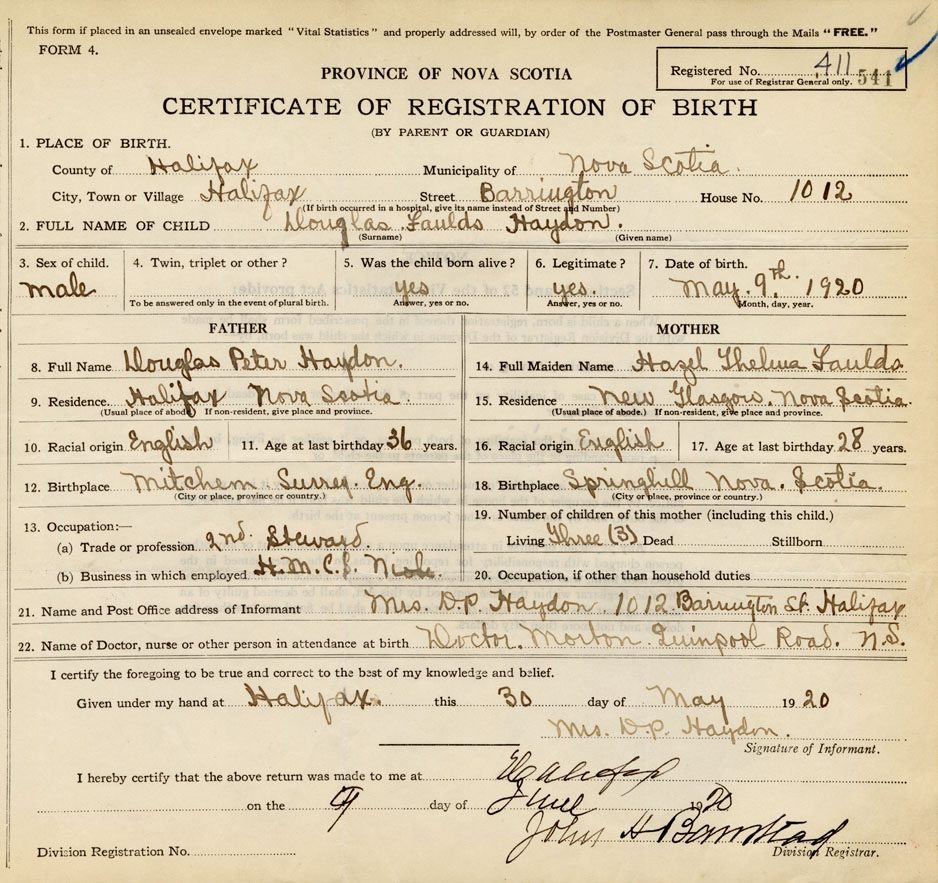 This form if placed in an unsealed envelope marked "Vital Statistics" and properly addressed will, by order of the Postmaster General pass through the Mails "FREE."
FORM 4.
Registered No. 411 541
For use of Registrar General only.
PROVINCE OF NOVA SCOTIA
CERTIFICATE OF REGISTRATION OF BIRTH
(BY PARENT OR GUARDIAN)
1. PLACE OF BIRTH.
County of Halifax Municipality of Nova Scotia.
City, Town or Village Halifax Street Barrington House No. 1012
(If birth occurred in a hospital, give its name instead of Street and Number)
2. FULL NAME OF CHILD Douglas Faulds Haydon.
(Surname) (Given name)
3. Sex of child. 4. Twin, triplet or other? 5. Was the child born alive? 6. Legitimate? 7. Date of birth.
male yes yes. May. 9th. 1920
To be answered only in the event of plural birth. Answer, yes or no. Answer, yes or no. Month, day, year.
FATHER MOTHER
8. Full Name Douglas Peter Haydon. 14. Full Maiden Name Hazel Thelma Faulds
9. Residence. Halifax Nova Scotia. 15. Residence New Glasgow. Nova Scotia.
(Usual place of abode) If non-resident, give place and province. (Usual place of abode.) If non-resident, give place and province.
10. Racial origin English 11. Age at last birthday 36 years. 16. Racial origin English 17. Age at last birthday 28 years.
12. Birthplace Mitchem Surrey. Eng. 18. Birthplace Springhill Nova. Scotia.
(City or place, province or country.) (City or place, province or country.)
13. Occupation:— 19. Number of children of this mother (including this child.)
(a) Trade or profession 2nd. Steward Living Three (3) Dead Stillborn
(b) Business in which employed H.M.C.S. 20. Occupation, if other than household duties
21. Name and Post Office address of Informant Mrs. D.P. Haydon 1012 Barrington St. Halifax
22. Name of Doctor, nurse or other person in attendance at birth Doctor. Morton. Quinpool Road. N.S.
I certify the foregoing to be true and correct to the best of my knowledge and belief.
Given under my hand at Halifax. this 30 day of May 1920
Mrs. D.P. Haydon.
Signature of Informant.
I hereby certify that the above return was made to me at Halifax
on the 9 day of June 1920
John H Barnstead
Division Registrar.
Division Registration No.